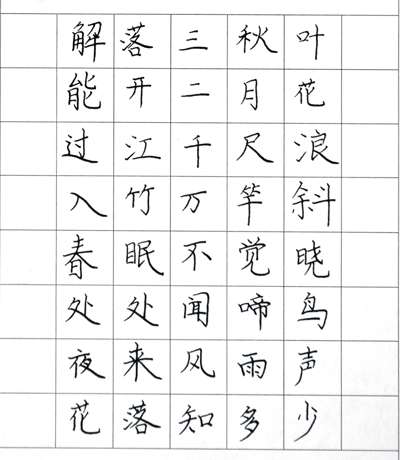 解落三秋叶
能开二月花
过江千尺浪
入竹万竿斜
春眠不觉晓
处处闻啼鸟
夜来风雨声
花落知多少